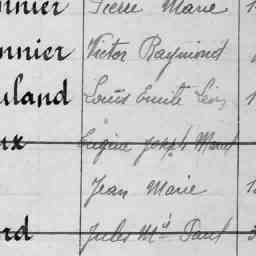 nnier Pierre Marie 1
onnier Victor Raymond
uland Louis Emile Léon 1
ux Eugène Joseph
Jean Marie 1
rd Jules Mᵈ Paul 3